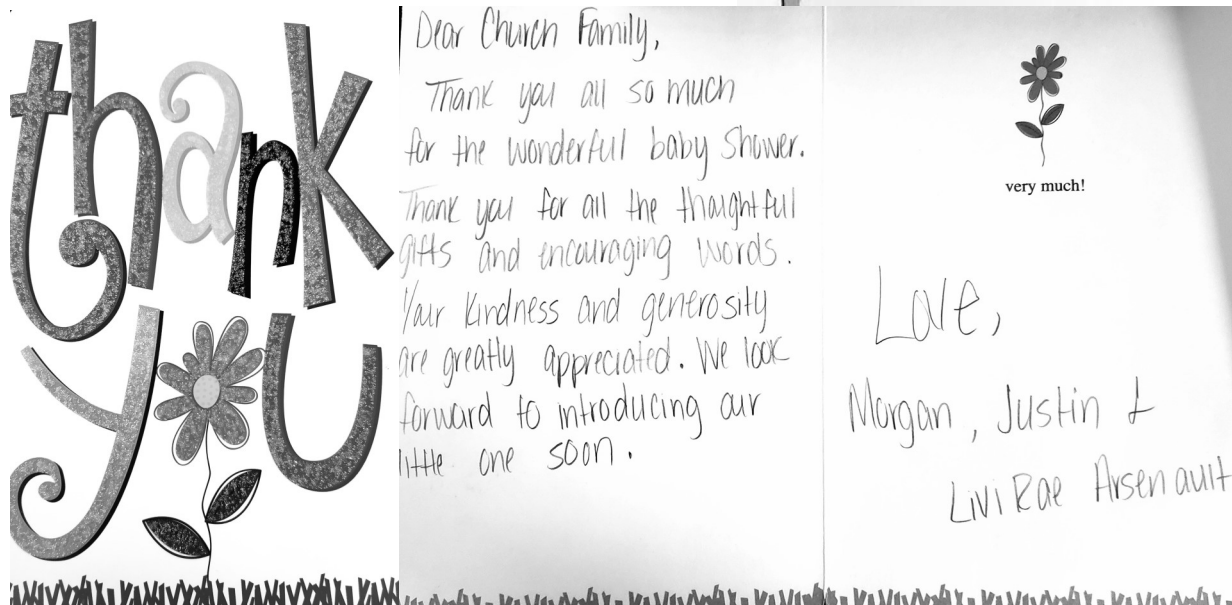 thank
you
Dear Church Family,
Thank you all so much
for the wonderful baby Shower.
Thank you for all the thoughtful
gifts and encouraging words.
Your kindness and generosity
are greatly appreciated. We look
forward to introducing our
little one soon.
very much!
Love,
Morgan, Justin &
Livi Rae Arsenault